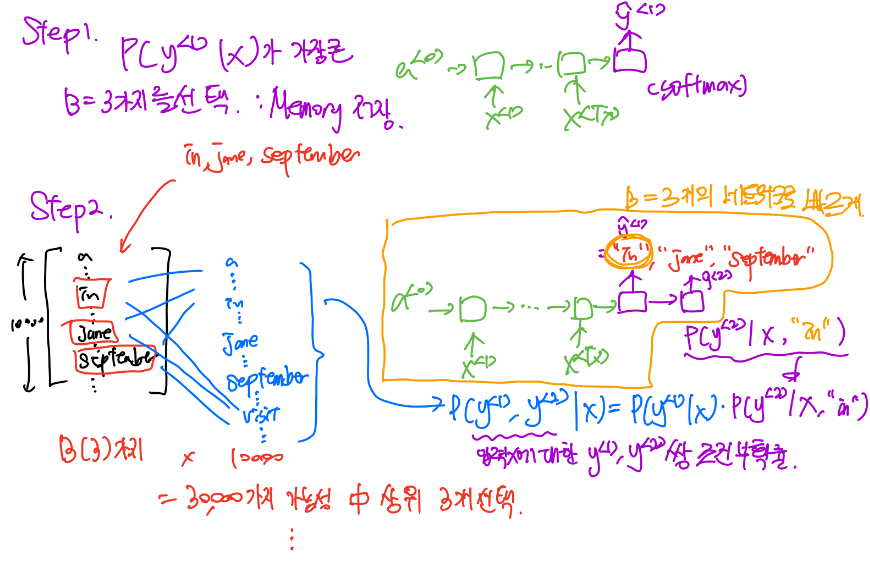 Step1. P(y<1>|x)가 가장큰
B=3가지를선택. : Memory 저장.
in, jane, september
a<0>
x<1>
x<Tx>
ŷ<1>
(softmax)
Step2.
10000
a
in
jane
september
a
in
jane
september
visit
B(3)가지 x 10000
= 30,000가지 가능성 中 상위 3개선택.
B=3개의 네트워크로
ŷ<1>
= "in", "jane", "september"
a<0>
ŷ<2>
x<1>
x<Tx>
P(y<2>|x, "in")
P(y<1>, y<2>|x) = P(y<1>|x)·P(y<2>|x, "in")
입력x에대한 y<1>, y<2>쌍 조건부확률.